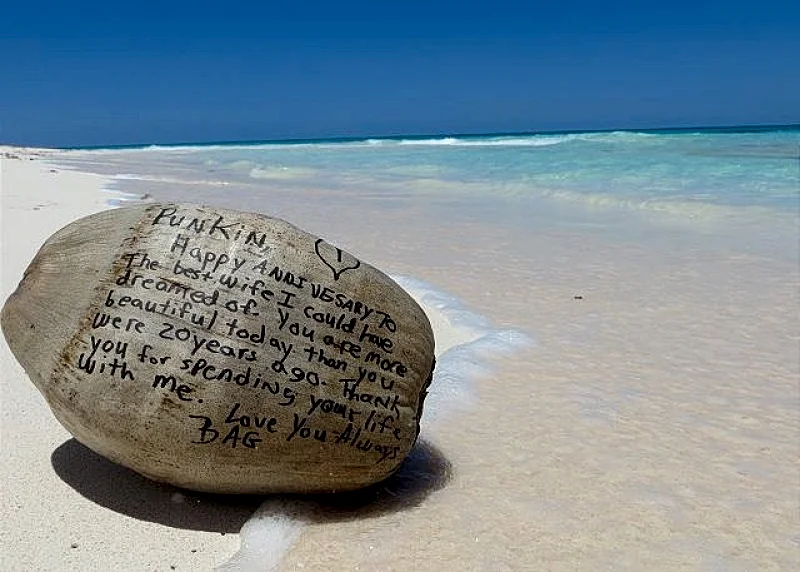 PUNKIN,
Happy ANNIVESARY TO
The best wife I could have
dreamed of. You are more
beautiful today than you
were 20 years ago. Thank
you for spending your life
with me.
Love You Always
BAG